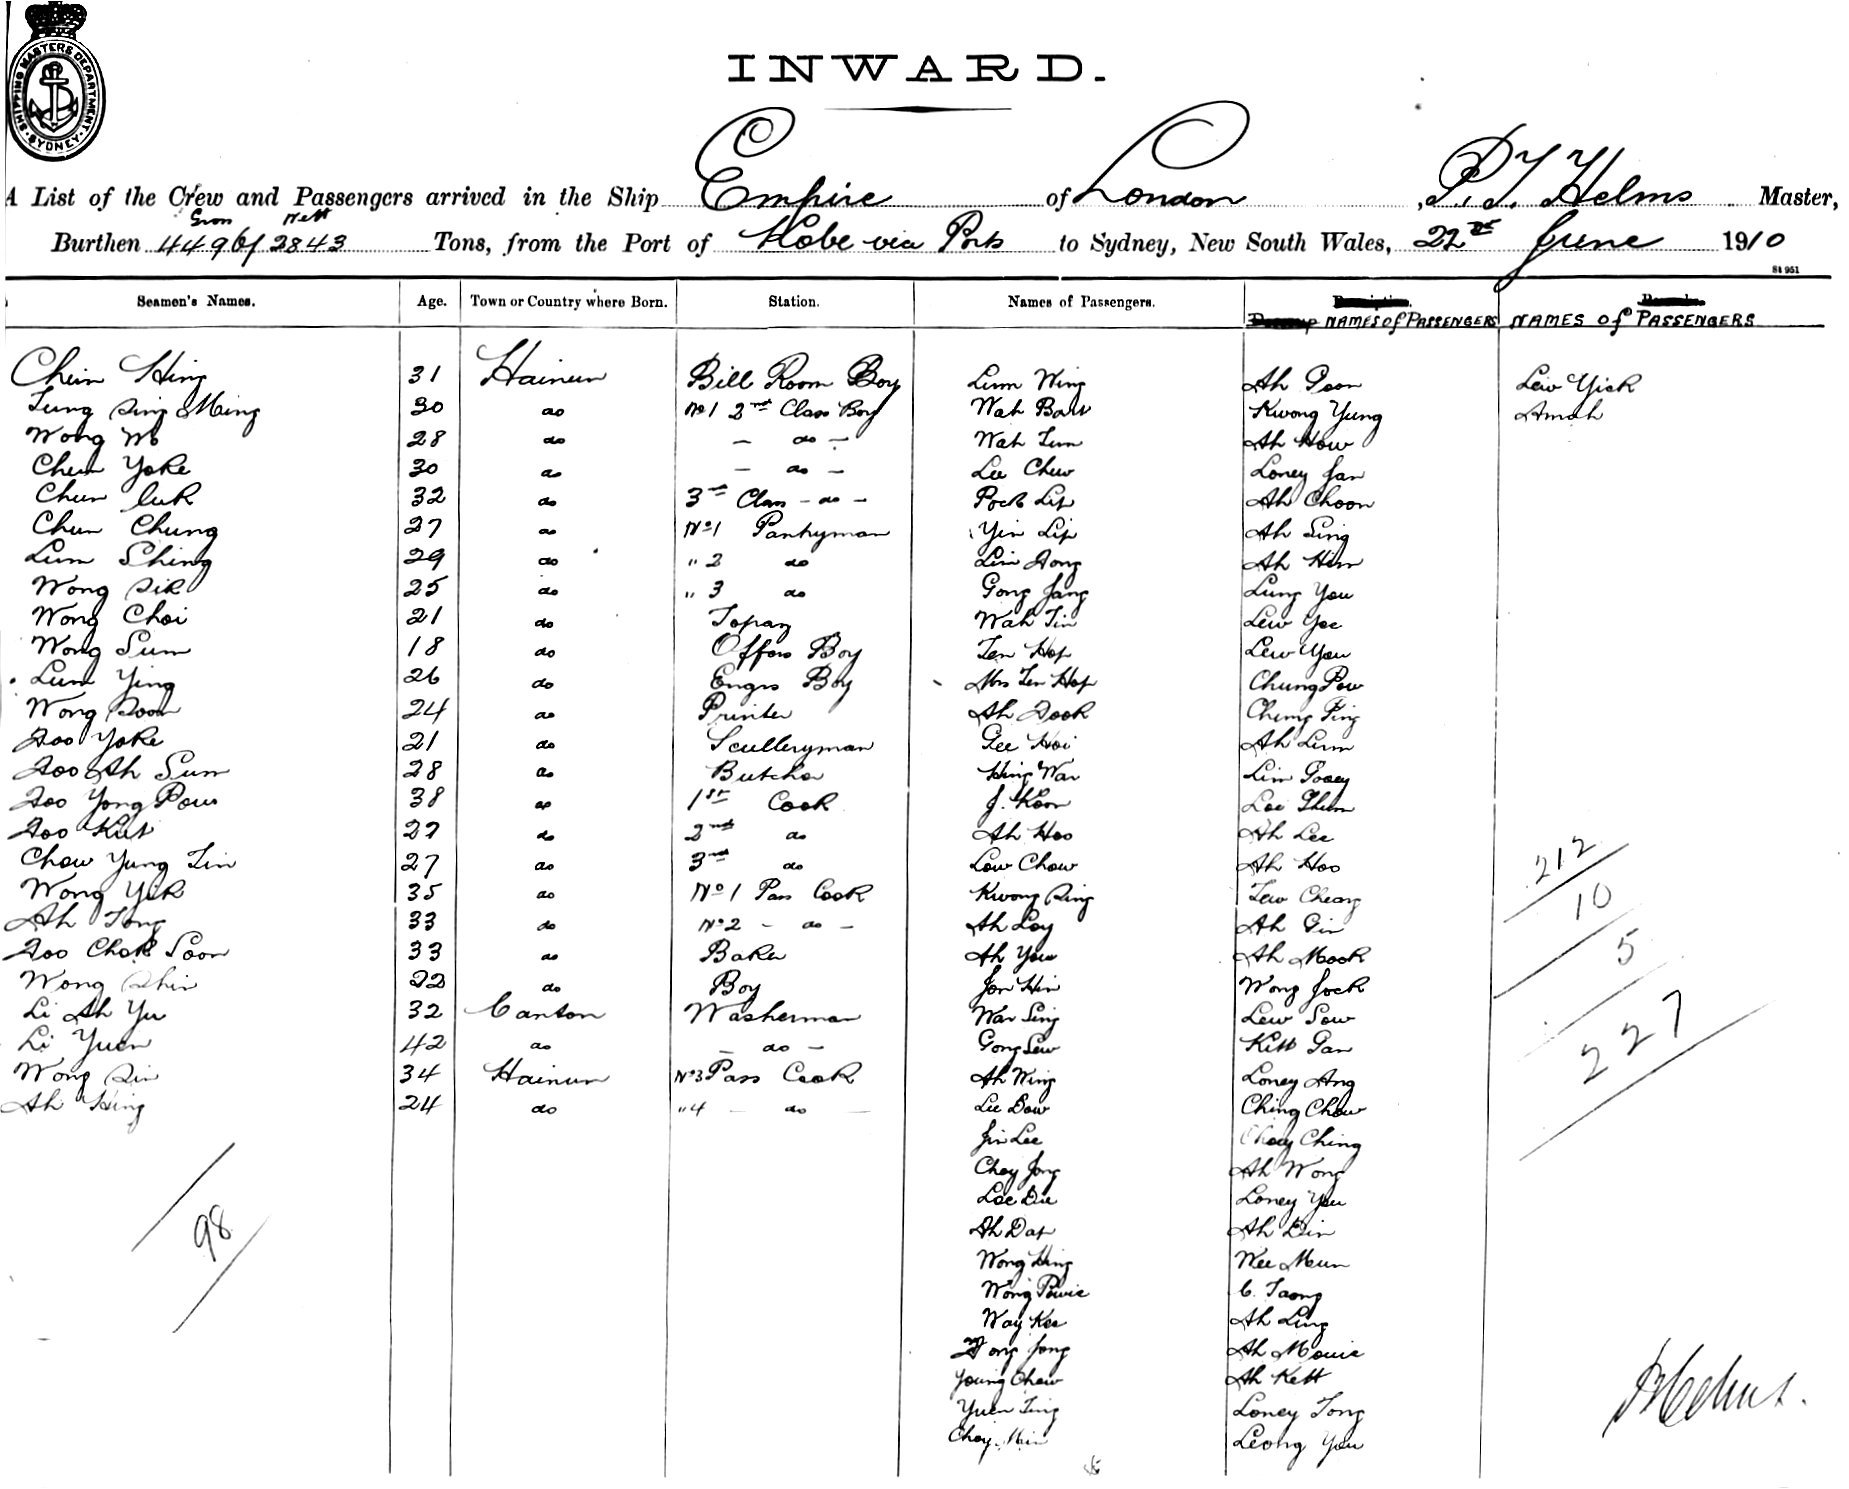 SHIPPING MASTERS DEPARTMENT
SYDNEY
INWARD.
A List of the Crew and Passengers arrived in the Ship Empire of London, P. T. Helms Master,
Gross Nett
Burthen 4496 2843 Tons, from the Port of Kobe via Ports to Sydney, New South Wales, 22nd June 1910
St 951
Seamen's Names. Age. Town or Country where Born. Station. Names of Passengers. NAMES of PASSENGERS NAMES of PASSENGERS
Chun Hing 31 Hainun Bill Room Boy Lum Wing Ah Poon Lew Yick
Tung Sing Ming 30 do No 1 2nd Class Boy Wah Kwong Yung Amah
Wong Wo 28 do - do - Wah Lum Ah How
Chun Yoke 30 do - do - Lee Chew Loney Jan
Chun Luk 32 do 3rd Class - do - Pock Lip Ah Choon
Chun Chung 27 do No 1 Pantryman Yin Lip Ah Sing
Lum Shing 29 do " 2 do Lim Fong Ah Him
Wong Sik 25 do " 3 do Gong Jang Lung You
Wong Choi 21 do Topaz Wah Tin Lew Yee
Wong Sum 18 do Offers Boy Ten Hop Lew You
Lum Ying 26 do Engrs Boy Mrs Ten Hop Chung Pow
Wong Soon 24 do Printer Ah Fook Chung Ping
Foo Yoke 21 do Sculleryman Gee Hoi Ah Lum
Foo Ah Sum 28 do Butcher Hing War Lim Pooey
Foo Yong Pow 38 do 1st Cook J. Koon Loe
Foo Kut 27 do 2nd do Ah Hoo Ah Lee
Chow Yung Tin 27 do 3rd do Low Chow Ah Hoo 212
Wong Yik 35 do No 1 Pass Cook Kwong Sing Lew Cheong 10
Ah Tong 33 do No 2 - do - Ah Loy Ah Gin
Foo Chok Soon 33 do Baker Ah You Ah Mook 5
Wong Shin 22 do Boy Jon Hin Wong Jock
Li Ah Yu 32 Canton Washerman War Sing Lew Sow
Li Yuen 42 do - do - Gong Sew Kitt Gan 227
Wong Sin 34 Hainun No 3 Pass Cook Ah Wing Loney Ang
Ah Hing 24 do " 4 - do - Lee Dow Ching Chow
Jin Lee Choy Ching
Choy Jong Ah Wong
Loe Due Loney You
98 Ah Dap Ah Din
Wong Hing Wee Mun
Wong Powie C. Taong
Way Kee Ah Ling
Fong Jong Ah Mouie
Young Chew Ah Kett
Yuen Ting Loney Tong
Choy Min Leong You
PT Helms.